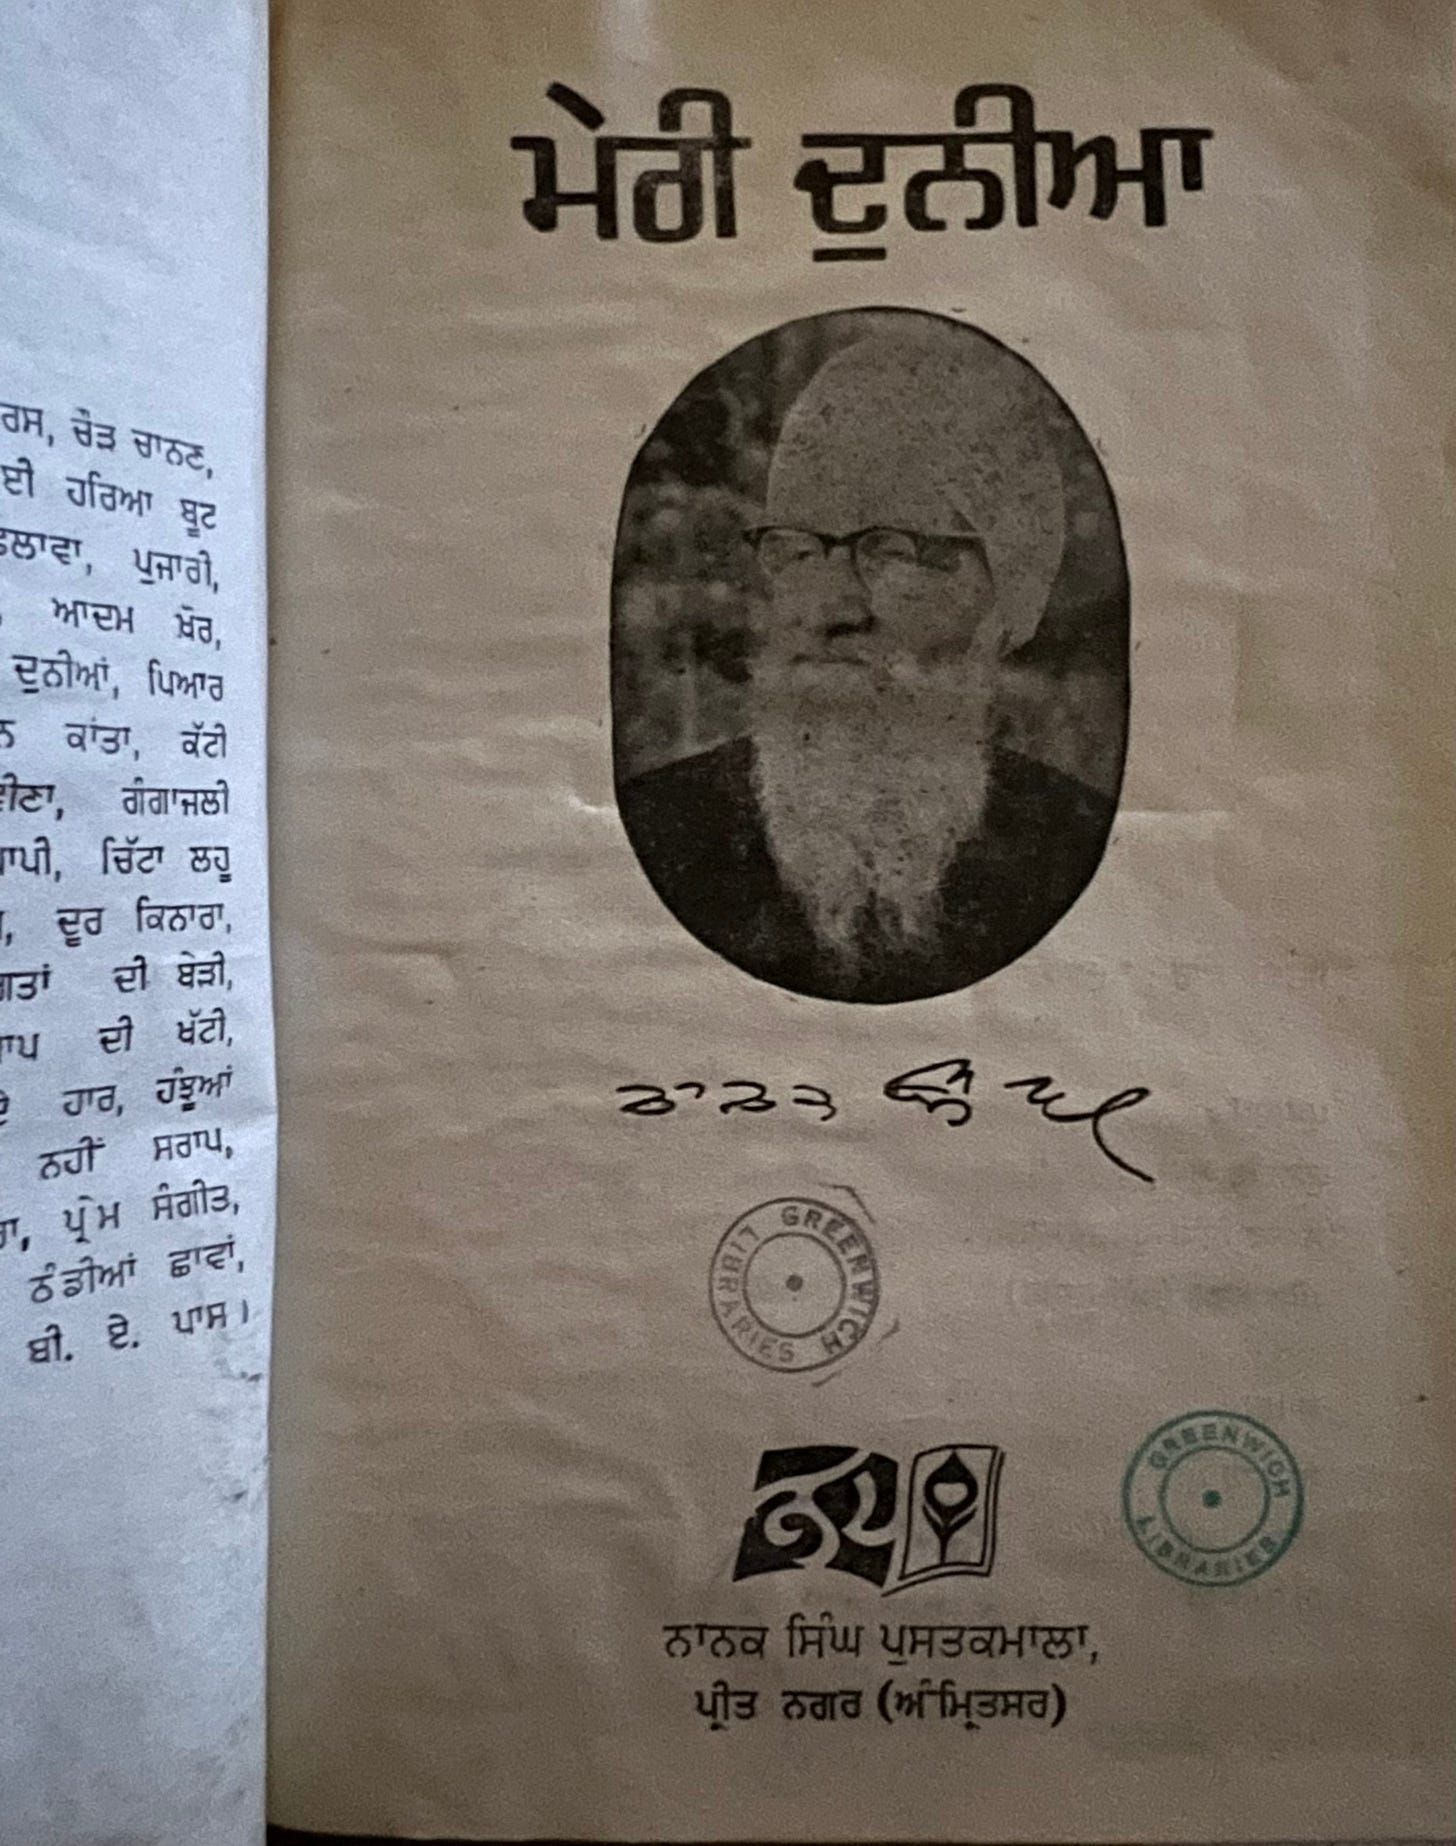 ਰਸ, ਚੌੜ ਚਾਨਣ,
ਈ ਹਰਿਆ ਬੂਟ
ਪੁਜਾਰੀ,
ਆਦਮ ਖ਼ੋਰ,
ਦੁਨੀਆਂ, ਪਿਆਰ
ਕਾਂਤਾ, ਕੱਟੀ
ਗੰਗਾਜਲੀ
ਚਿੱਟਾ ਲਹੂ
ਦੂਰ ਕਿਨਾਰਾ,
ਦੀ ਬੇੜੀ,
ਦੀ ਖੱਟੀ,
ਹਾਰ, ਹੰਝੂਆਂ
ਨਹੀਂ ਸਰਾਪ,
ਪ੍ਰੇਮ ਸੰਗੀਤ,
ਠੰਡੀਆਂ ਛਾਵਾਂ,
ਬੀ. ਏ. ਪਾਸ।
ਮੇਰੀ ਦੁਨੀਆ
ਨਾਨਕ ਸਿੰਘ
GREENWICH LIBRARIES
GREENWICH LIBRARIES
ਨਾਨਕ ਸਿੰਘ ਪੁਸਤਕਮਾਲਾ,
ਪ੍ਰੀਤ ਨਗਰ (ਅੰਮ੍ਰਿਤਸਰ)